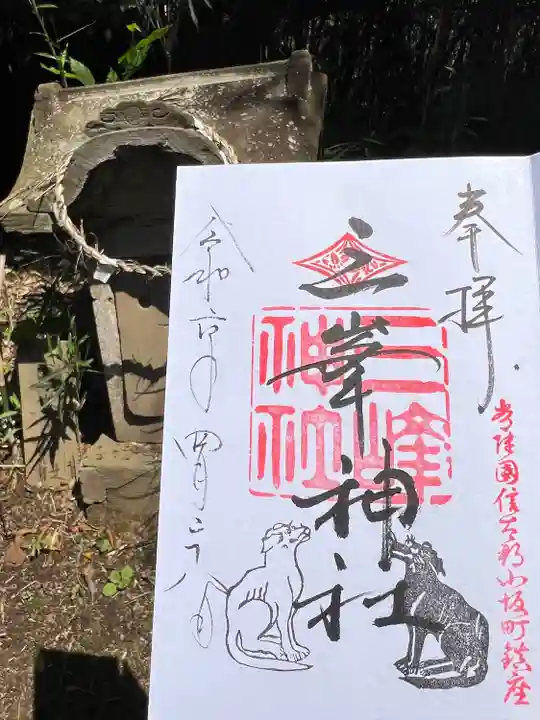 奉拝
常陸国信太郡小坂町鎮座
三峯神社
三峰
神社
令和六年四月二十八日